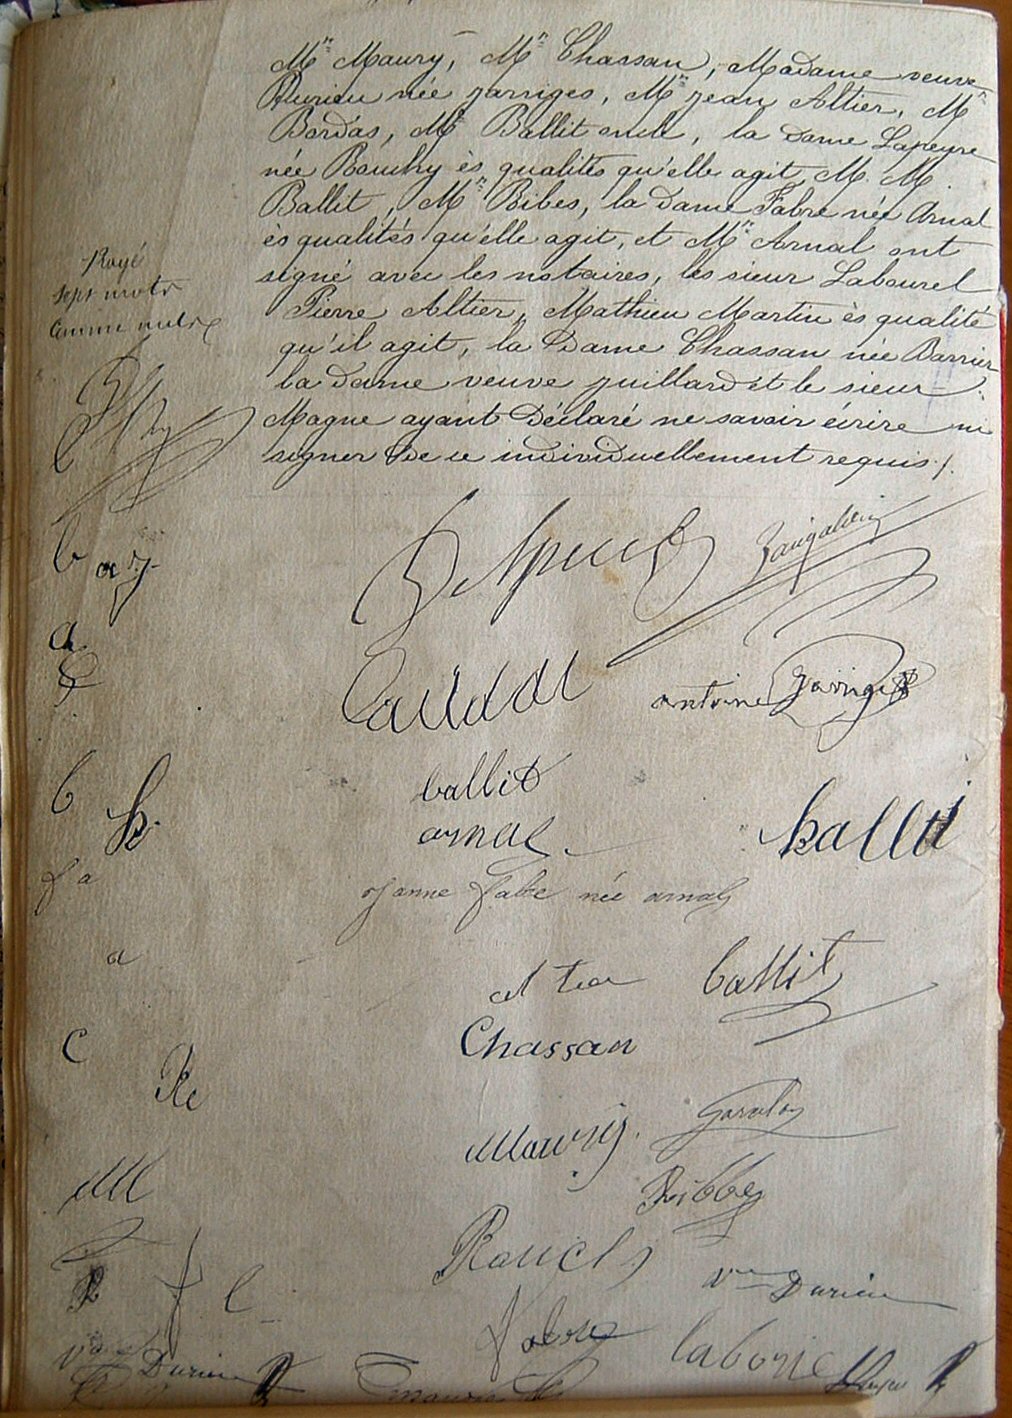 Mr Maury, Mr Chassan, Madame veuve
Durieu née Jarriges, Mr Jean Altier, Mr
Bordas, Mr Ballit oncle, la dame Lapeyre
née Bouchy ès qualités qu'elle agit, M. M.
Ballit, Mr Bibes, la dame Fabre née Arnal
ès qualités qu'elle agit, et Mr Arnal ont
signé avec les notaires, les sieur Labourel
Pierre Altier, Mathieu Martin ès qualité
qu'il agit, la Dame Chassan née Barrier
la dame veuve Juillard et le sieur
Magne ayant Déclaré ne savoir écrire ni
signer de ce individuellement requis /.
Rayé
sept mots
comme nuls
b
a
antoine Jarrige
b
ballit
arnal
fa
Janne fabre née arnal
a
altier
ballit
C
Chassan
Maury
M
Ribbes
Rouch
Vve Durieu
f
L
fabre
laborie
Vve Durieu